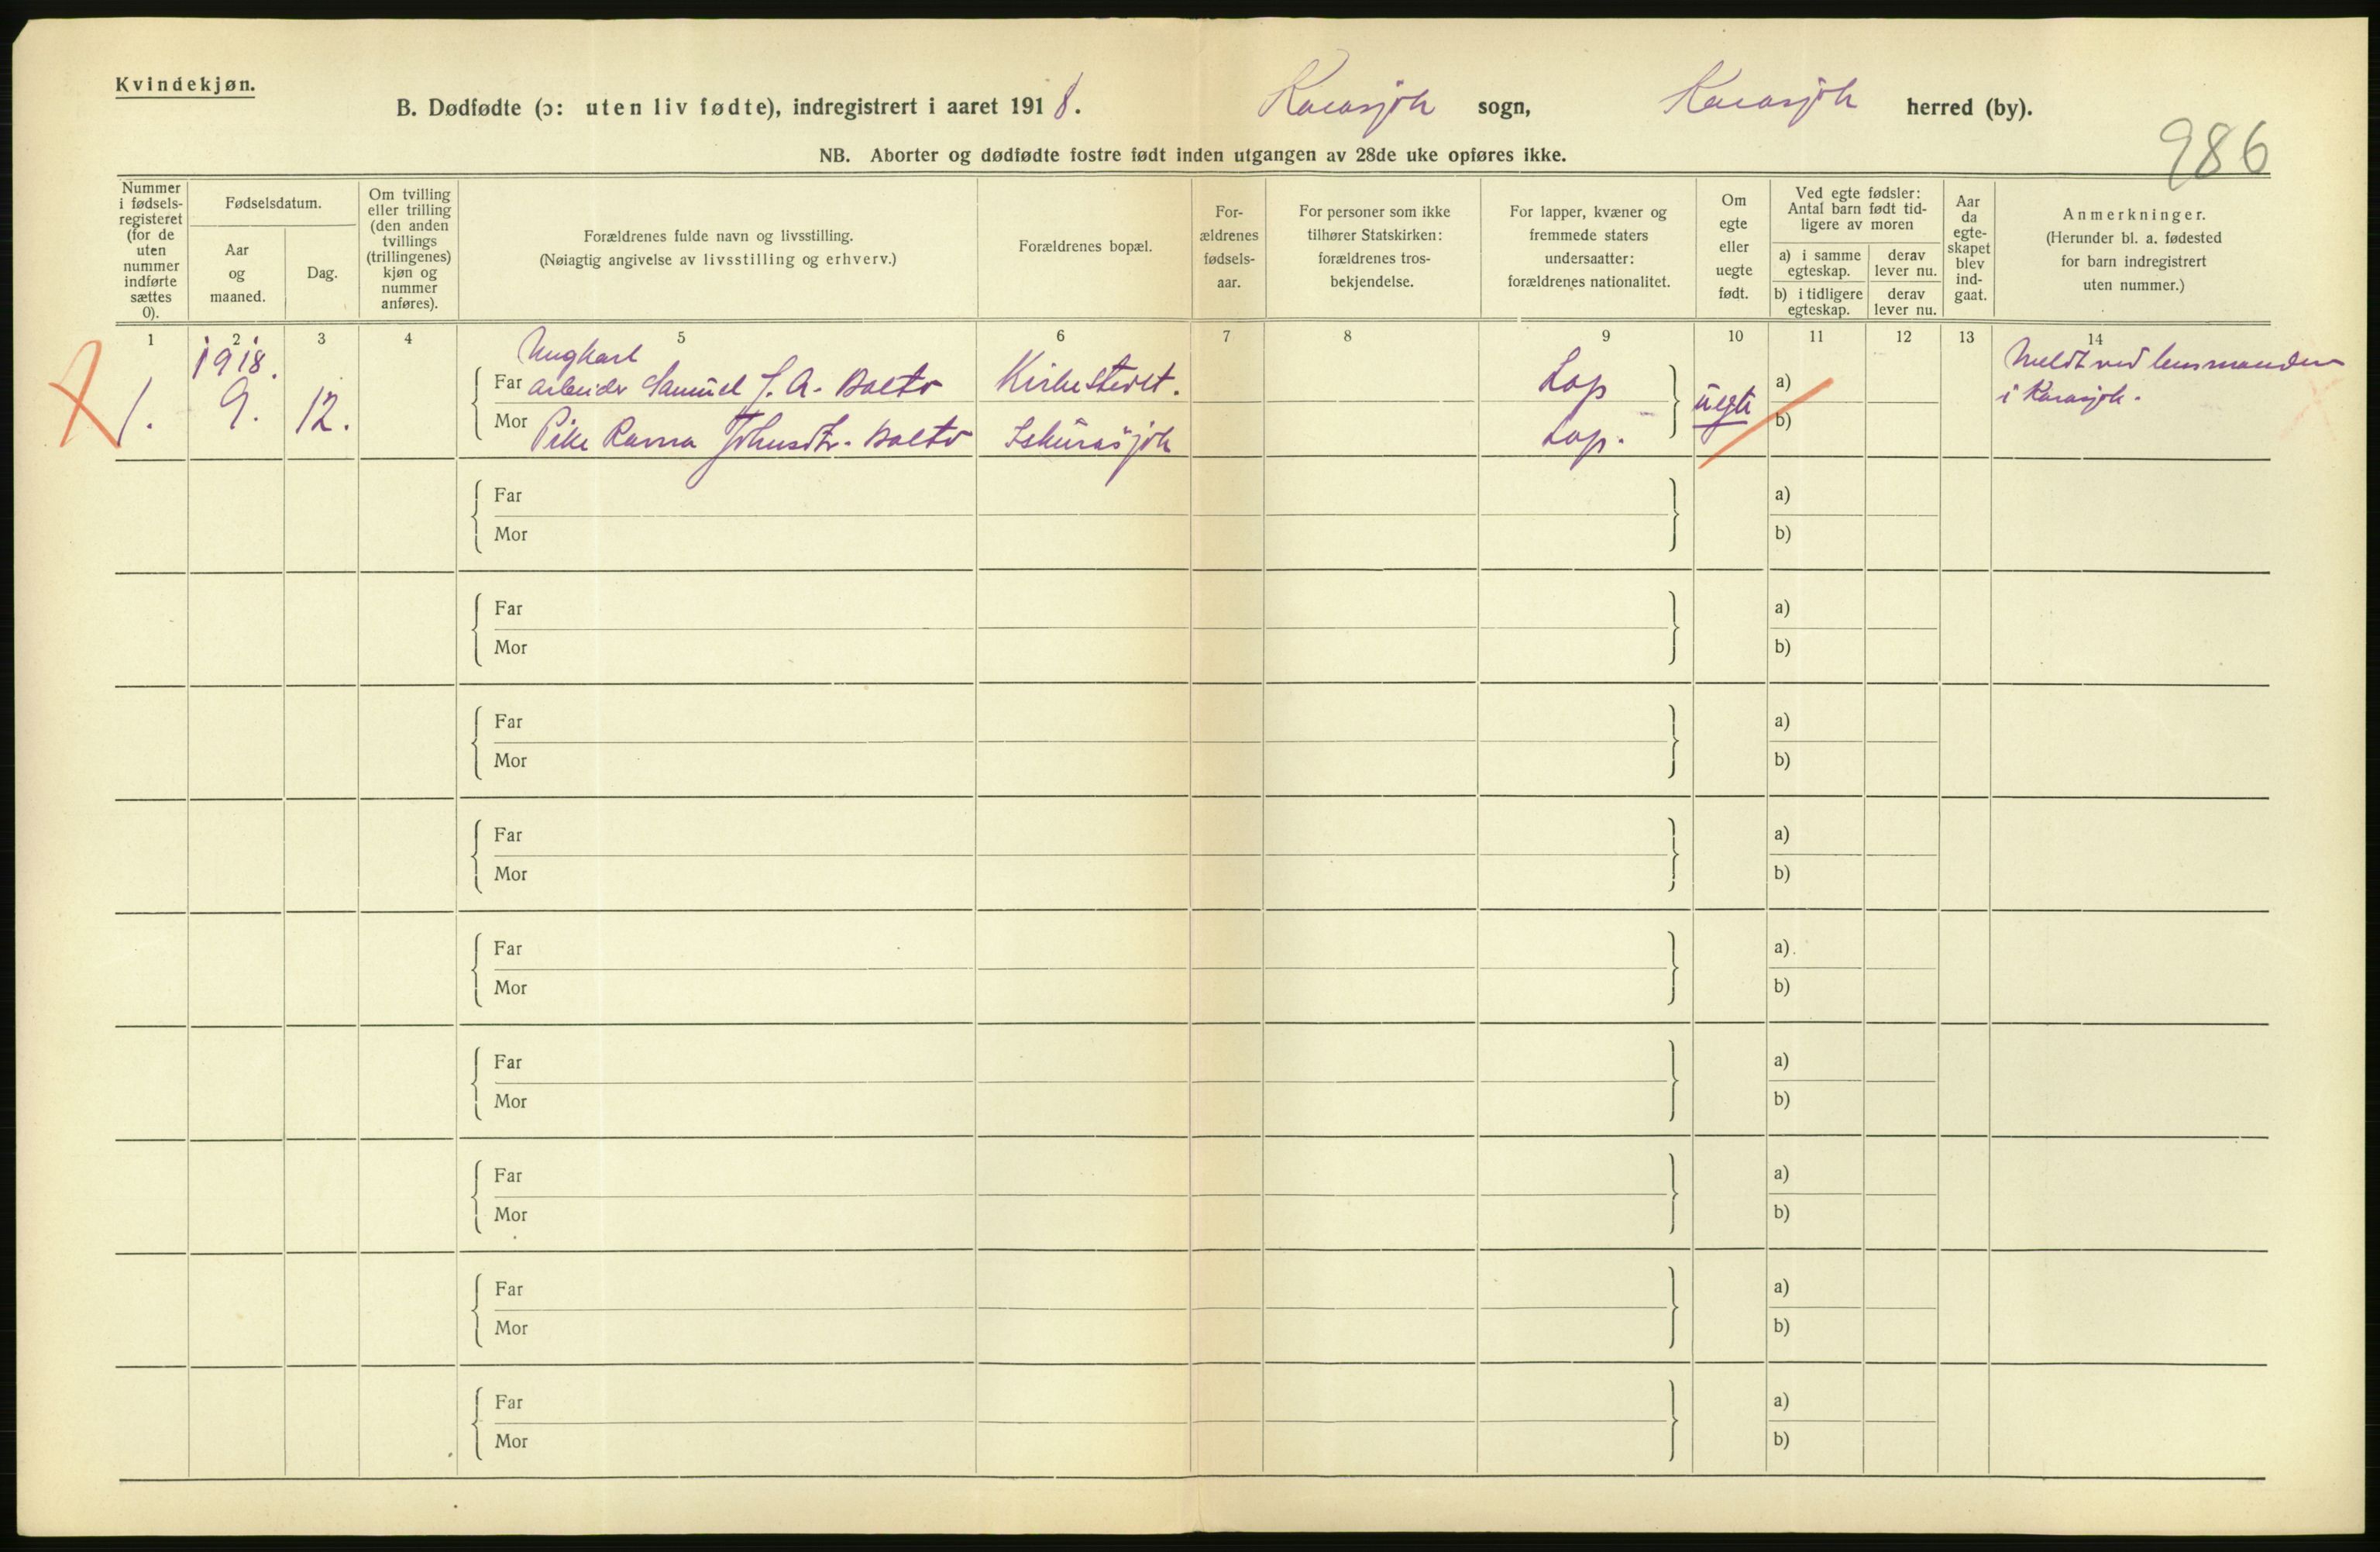 Kvindekjøn.
B. Dødfødte (ɔ: uten liv fødte), indregistrert i aaret 1918. Karasjok sogn, Karasjok herred (by).
986
NB. Aborter og dødfødte fostre født inden utgangen av 28de uke opføres ikke.
Nummer
i fødsels-
registeret
(for de
uten
nummer
indførte
sættes
0).
Fødselsdatum.
Aar
og
maaned.
Dag.
Om tvilling
eller trilling
(den anden
tvillings
(trillingenes)
kjøn og
nummer
anføres).
Forældrenes fulde navn og livsstilling.
(Nøiagtig angivelse av livsstilling og erhverv.)
Forældrenes bopæl.
For-
ældrenes
fødsels-
aar.
For personer som ikke
tilhører Statskirken:
forældrenes tros-
bekjendelse.
For lapper, kvæner og
fremmede staters
undersaatter:
forældrenes nationalitet.
Om
egte
eller
uegte
født.
Ved egte fødsler:
Antal barn født tid-
ligere av moren
a) i samme
egteskap.
derav
lever nu.
b) i tidligere
egteskap.
derav
lever nu.
Aar
da
egte-
skapet
blev
ind-
gaat.
Anmerkninger.
(Herunder bl. a. fødested
for barn indregistrert
uten nummer.)
1 2 3 4 5 6 7 8 9 10 11 12 13 14
1. 1918. 9. 12.
Ungkarl
Far arbeider Samuel J. A. Balto Kirkestedet. Lap
Mor Pike Ravna Johnsdtr. Balto Iskurasjok Lap.
uegte
a)
b)
Meldt ved lensmanden
i Karasjok.
Far a)
Mor b)
Far a)
Mor b)
Far a)
Mor b)
Far a)
Mor b)
Far a)
Mor b)
Far a)
Mor b)
Far a)
Mor b)
Far a)
Mor b)
Far a)
Mor b)